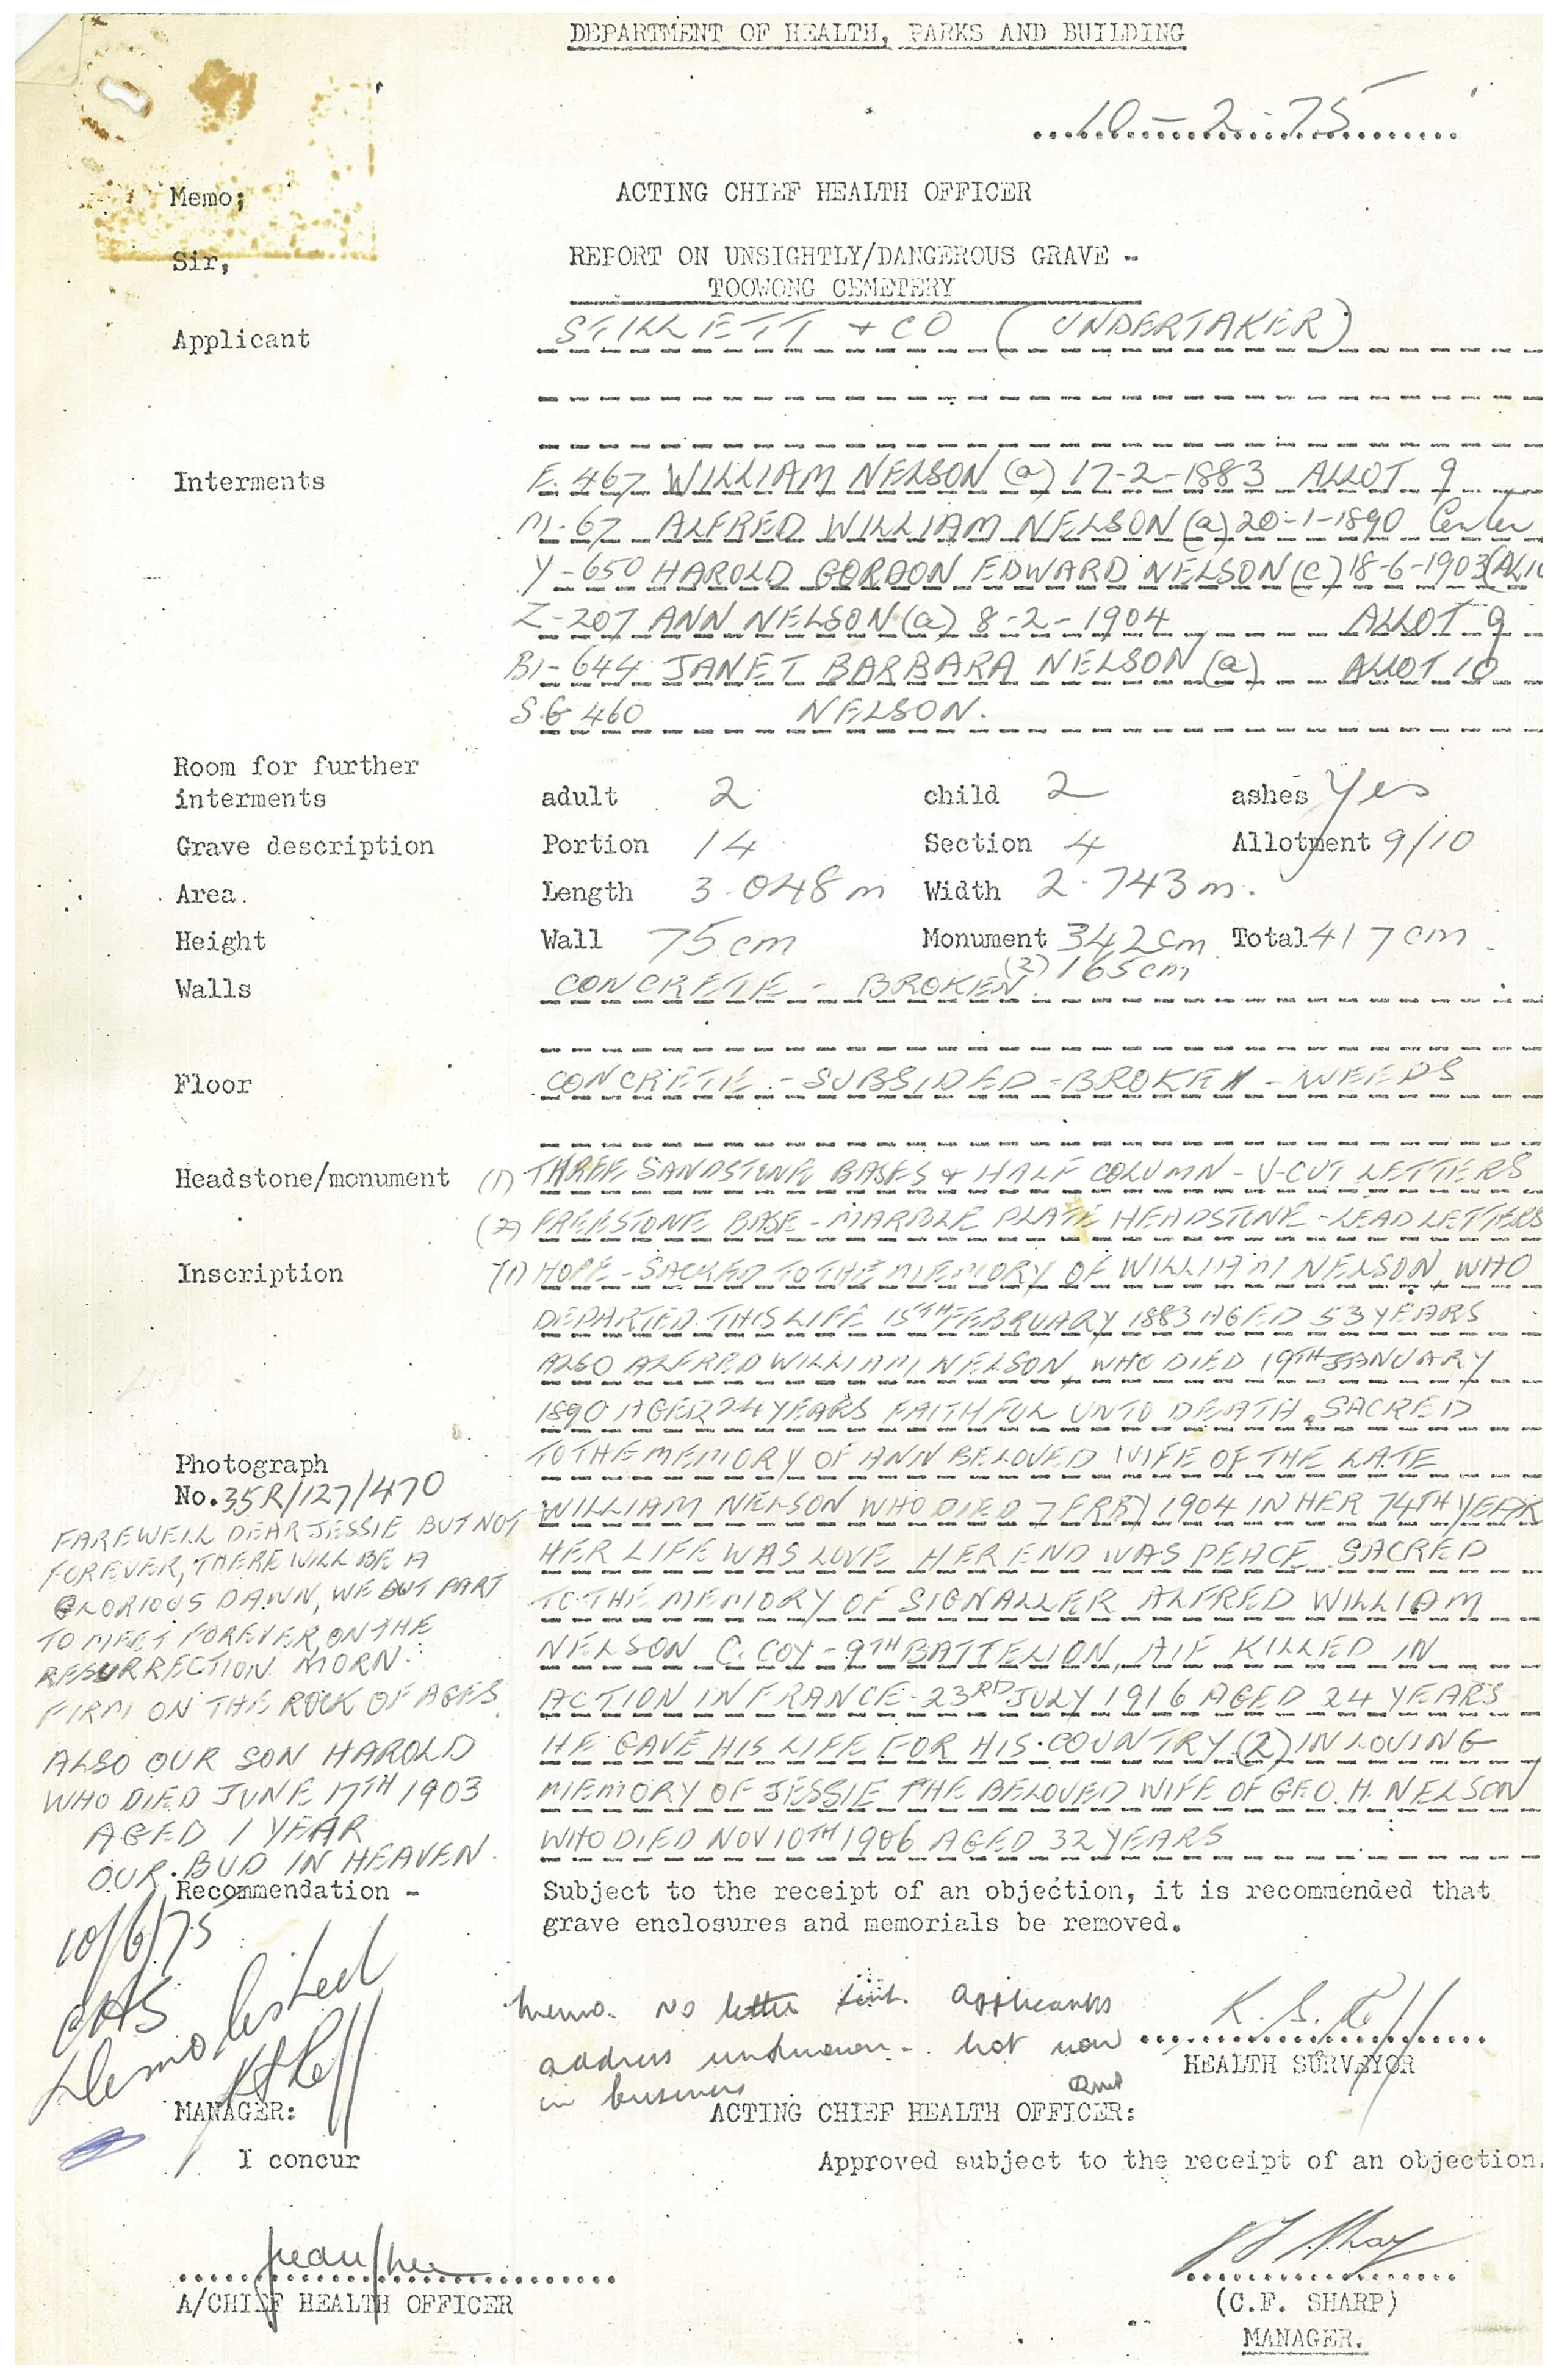 DEPARTMENT OF HEALTH, PARKS AND BUILDING
10-2-75
Memo;
ACTING CHIEF HEALTH OFFICER
Sir,
REPORT ON UNSIGHTLY/DANGEROUS GRAVE -
TOOWONG CEMETERY
Applicant STILLETT + CO (UNDERTAKER)
Interments E. 467 WILLIAM NELSON (a) 17-2-1883 ALLOT 9
M-67 ALFRED WILLIAM NELSON (a) 20-1-1890 Center
Y-650 HAROLD GORDON EDWARD NELSON (c) 18-6-1903
Z-207 ANN NELSON (a) 8-2-1904 ALLOT 9
B1-644 JANET BARBARA NELSON (a) ALLOT 10
S.G 460 NELSON.
Room for further
interments adult 2 child 2 ashes Yes
Grave description Portion 14 Section 4 Allotment 9/10
Area. Length 3.048m Width 2.743m.
Height Wall 75cm Monument 342cm Total 417cm
(2) 165cm
Walls CONCRETE - BROKEN.
Floor CONCRETE - SUBSIDED - BROKEN - WEEDS
Headstone/monument (1) THREE SANDSTONE BASES & HALF COLUMN - V-CUT LETTERS
(2) FREESTONE BASE - MARBLE PLATE HEADSTONE - LEAD LETTERS
Inscription (1) HOPE - SACRED TO THE MEMORY OF WILLIAM NELSON WHO
DEPARTED THIS LIFE 15TH FEBRUARY 1883 AGED 53 YEARS
ALSO ALFRED WILLIAM NELSON, WHO DIED 19TH JANUARY
1890 AGED 24 YEARS FAITHFUL UNTO DEATH. SACRED
TO THE MEMORY OF ANN BELOVED WIFE OF THE LATE
WILLIAM NELSON WHO DIED 7 FEBY 1904 IN HER 74TH YEAR
HER LIFE WAS LOVE HER END WAS PEACE SACRED
TO THE MEMORY OF SIGNALLER ALFRED WILLIAM
NELSON C. COY - 9TH BATTELION, AIF KILLED IN
ACTION IN FRANCE 23RD JULY 1916 AGED 24 YEARS
HE GAVE HIS LIFE FOR HIS COUNTRY (2) IN LOVING
MEMORY OF JESSIE THE BELOVED WIFE OF GEO. H. NELSON
WHO DIED NOV 10TH 1906 AGED 32 YEARS
Photograph
No. 35R/127/470
FAREWELL DEAR JESSIE BUT NOT
FOREVER, THERE WILL BE A
GLORIOUS DAWN, WE BUT PART
TO MEET FOREVER, ON THE
RESURRECTION MORN.
FIRM ON THE ROCK OF AGES.
ALSO OUR SON HAROLD
WHO DIED JUNE 17TH 1903
AGED 1 YEAR
OUR BUD IN HEAVEN.
Recommendation - Subject to the receipt of an objection, it is recommended that
grave enclosures and memorials be removed.
10/6/75
Demolished
Memo. No letter sent. Applicants
address unknown - not now
in business
HEALTH SURVEYOR
MANAGER:
ACTING CHIEF HEALTH OFFICER:
I concur
Approved subject to the receipt of an objection.
A/CHIEF HEALTH OFFICER
(C.F. SHARP)
MANAGER.